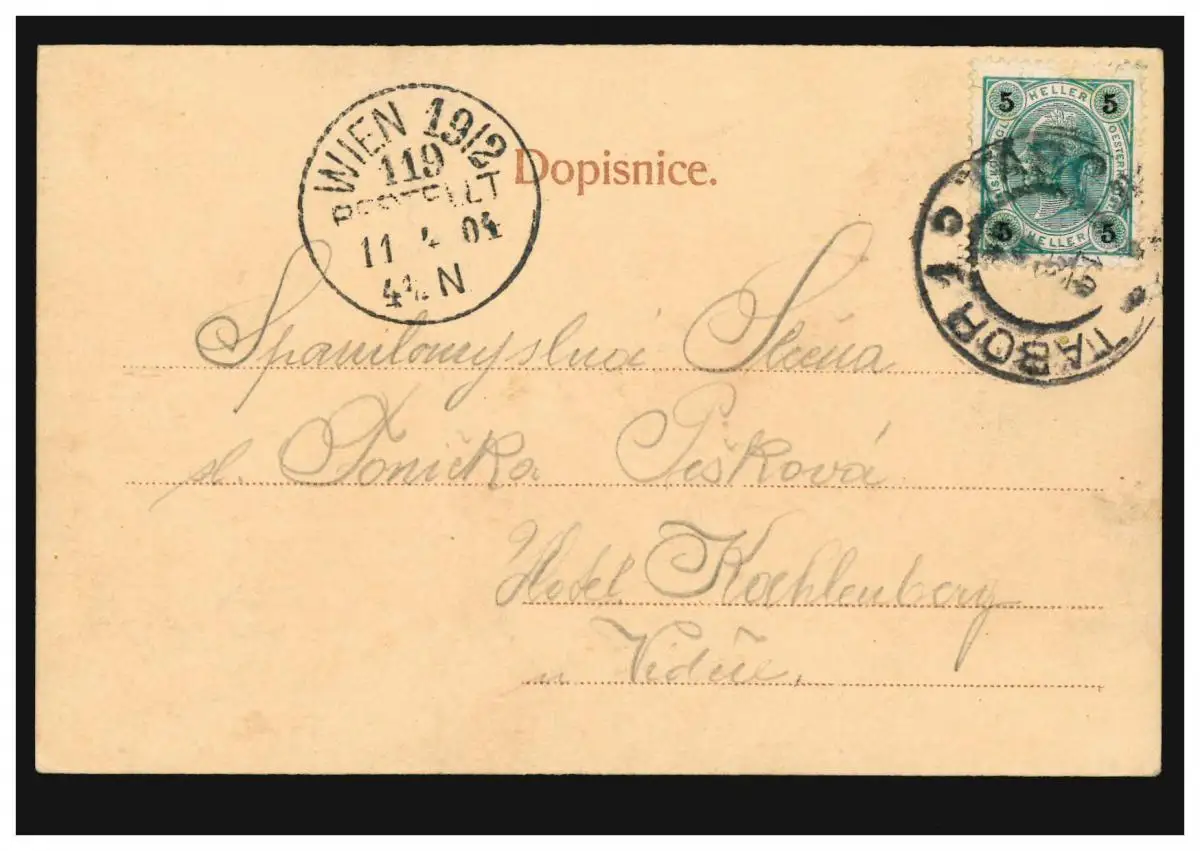 WIEN 19/2
119
BESTELLT
11 4 04
4½ N
Dopisnice.
5 HELLER 5
5 HELLER 5
TÁBOR 1
Spanilomyslná Slečna
sl. Tonička Pešková
Hotel Kahlenberg
u Vídně.